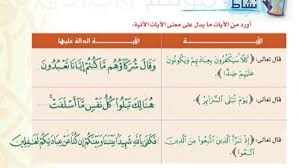 نشاط
أورد من الآيات ما يدل على معنى الآيات الآتية:
الآية
الآية الدالة عليها
قال تعالى: ﴿كَلَّا سَيَكْفُرُونَ بِعِبَادَتِهِمْ وَيَكُونُونَ
عَلَيْهِمْ ضِدًّا﴾.
وَقَالَ شُرَكَاؤُهُم مَّا كُنتُمْ إِيَّانَا تَعْبُدُونَ
قال تعالى: ﴿يَوْمَ تُبْلَى السَّرَائِرُ﴾.
هُنَالِكَ تَبْلُوا كُلُّ نَفْسٍ مَّا أَسْلَفَتْ
قال تعالى: ﴿إِذْ تَبَرَّأَ الَّذِينَ اتُّبِعُوا مِنَ الَّذِينَ
اتَّبَعُوا﴾.
فَكَفَىٰ بِاللَّهِ شَهِيدًا بَيْنَنَا وَبَيْنَكُمْ إِن كُنَّا عَنْ عِبَادَتِكُمْ لَغَافِلِينَ